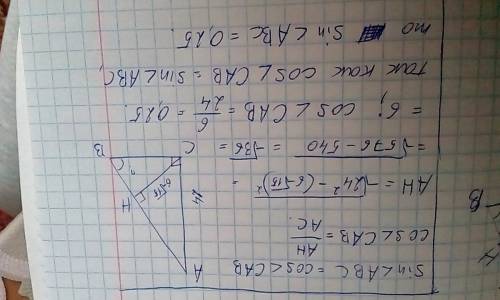 sin∠ABC = cos∠CAB
cos∠CAB = AH/AC.
AH = √24² - (6√15)² =
= √576 - 540 = √36 =
= 6; cos∠CAB = 6/24 = 0,25.
так как cos∠CAB = sin∠ABC,
то sin∠ABC = 0,25.
A
24
C
6√15
H
?
B
B